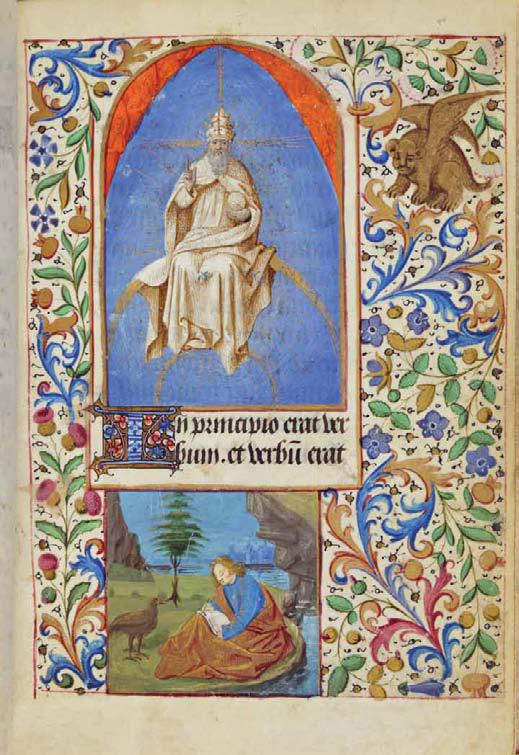 In principio erat ver
bum. et verbū erat